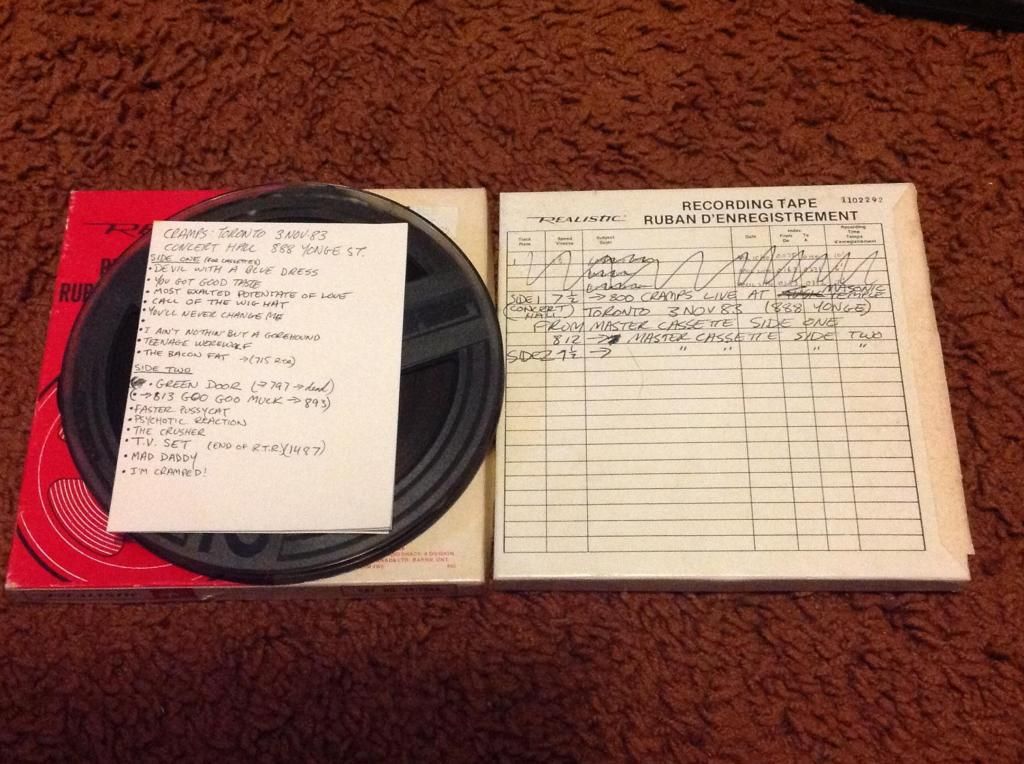 CRAMPS: TORONTO 3 NOV. 83
CONCERT HALL 888 YONGE ST.
SIDE ONE (FOR CASSETTE)
• DEVIL WITH A BLUE DRESS
• YOU GOT GOOD TASTE
• MOST EXALTED POTENTATE OF LOVE
• CALL OF THE WIG HAT
• YOU'LL NEVER CHANGE ME
•
• I AIN'T NOTHIN' BUT A GOREHOUND
• TEENAGE WEREWOLF
• THE BACON FAT → (715 RTR)
SIDE TWO
• GREEN DOOR (→ 797 → dead)
(• → 813 GOO GOO MUCK → 893)
• FASTER PUSSYCAT
• PSYCHOTIC REACTION
• THE CRUSHER
• T.V. SET (END OF R.T.R.)(1487)
• MAD DADDY
• I'M CRAMPED!
REALISTIC
RECORDING TAPE
RUBAN D'ENREGISTREMENT
1102292
Track Speed Subject Date Index Recording Time
From To
De A
SIDE 1 7½ → 800 CRAMPS LIVE AT MASONIC TEMPLE
(CONCERT HALL) TORONTO 3 NOV 83 (888 YONGE)
FROM MASTER CASSETTE SIDE ONE
812 → MASTER CASSETTE SIDE TWO
SIDE 2 7½ → " " " "
REALISTIC